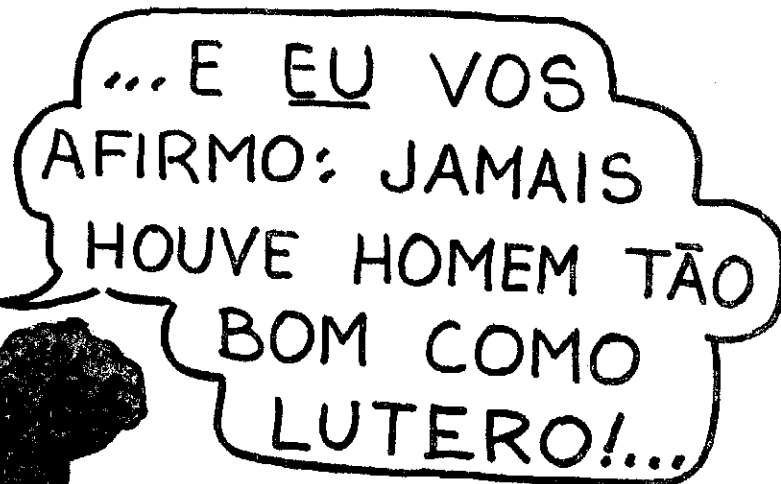 ... E EU VOS
AFIRMO: JAMAIS
HOUVE HOMEM TÃO
BOM COMO
LUTERO!...